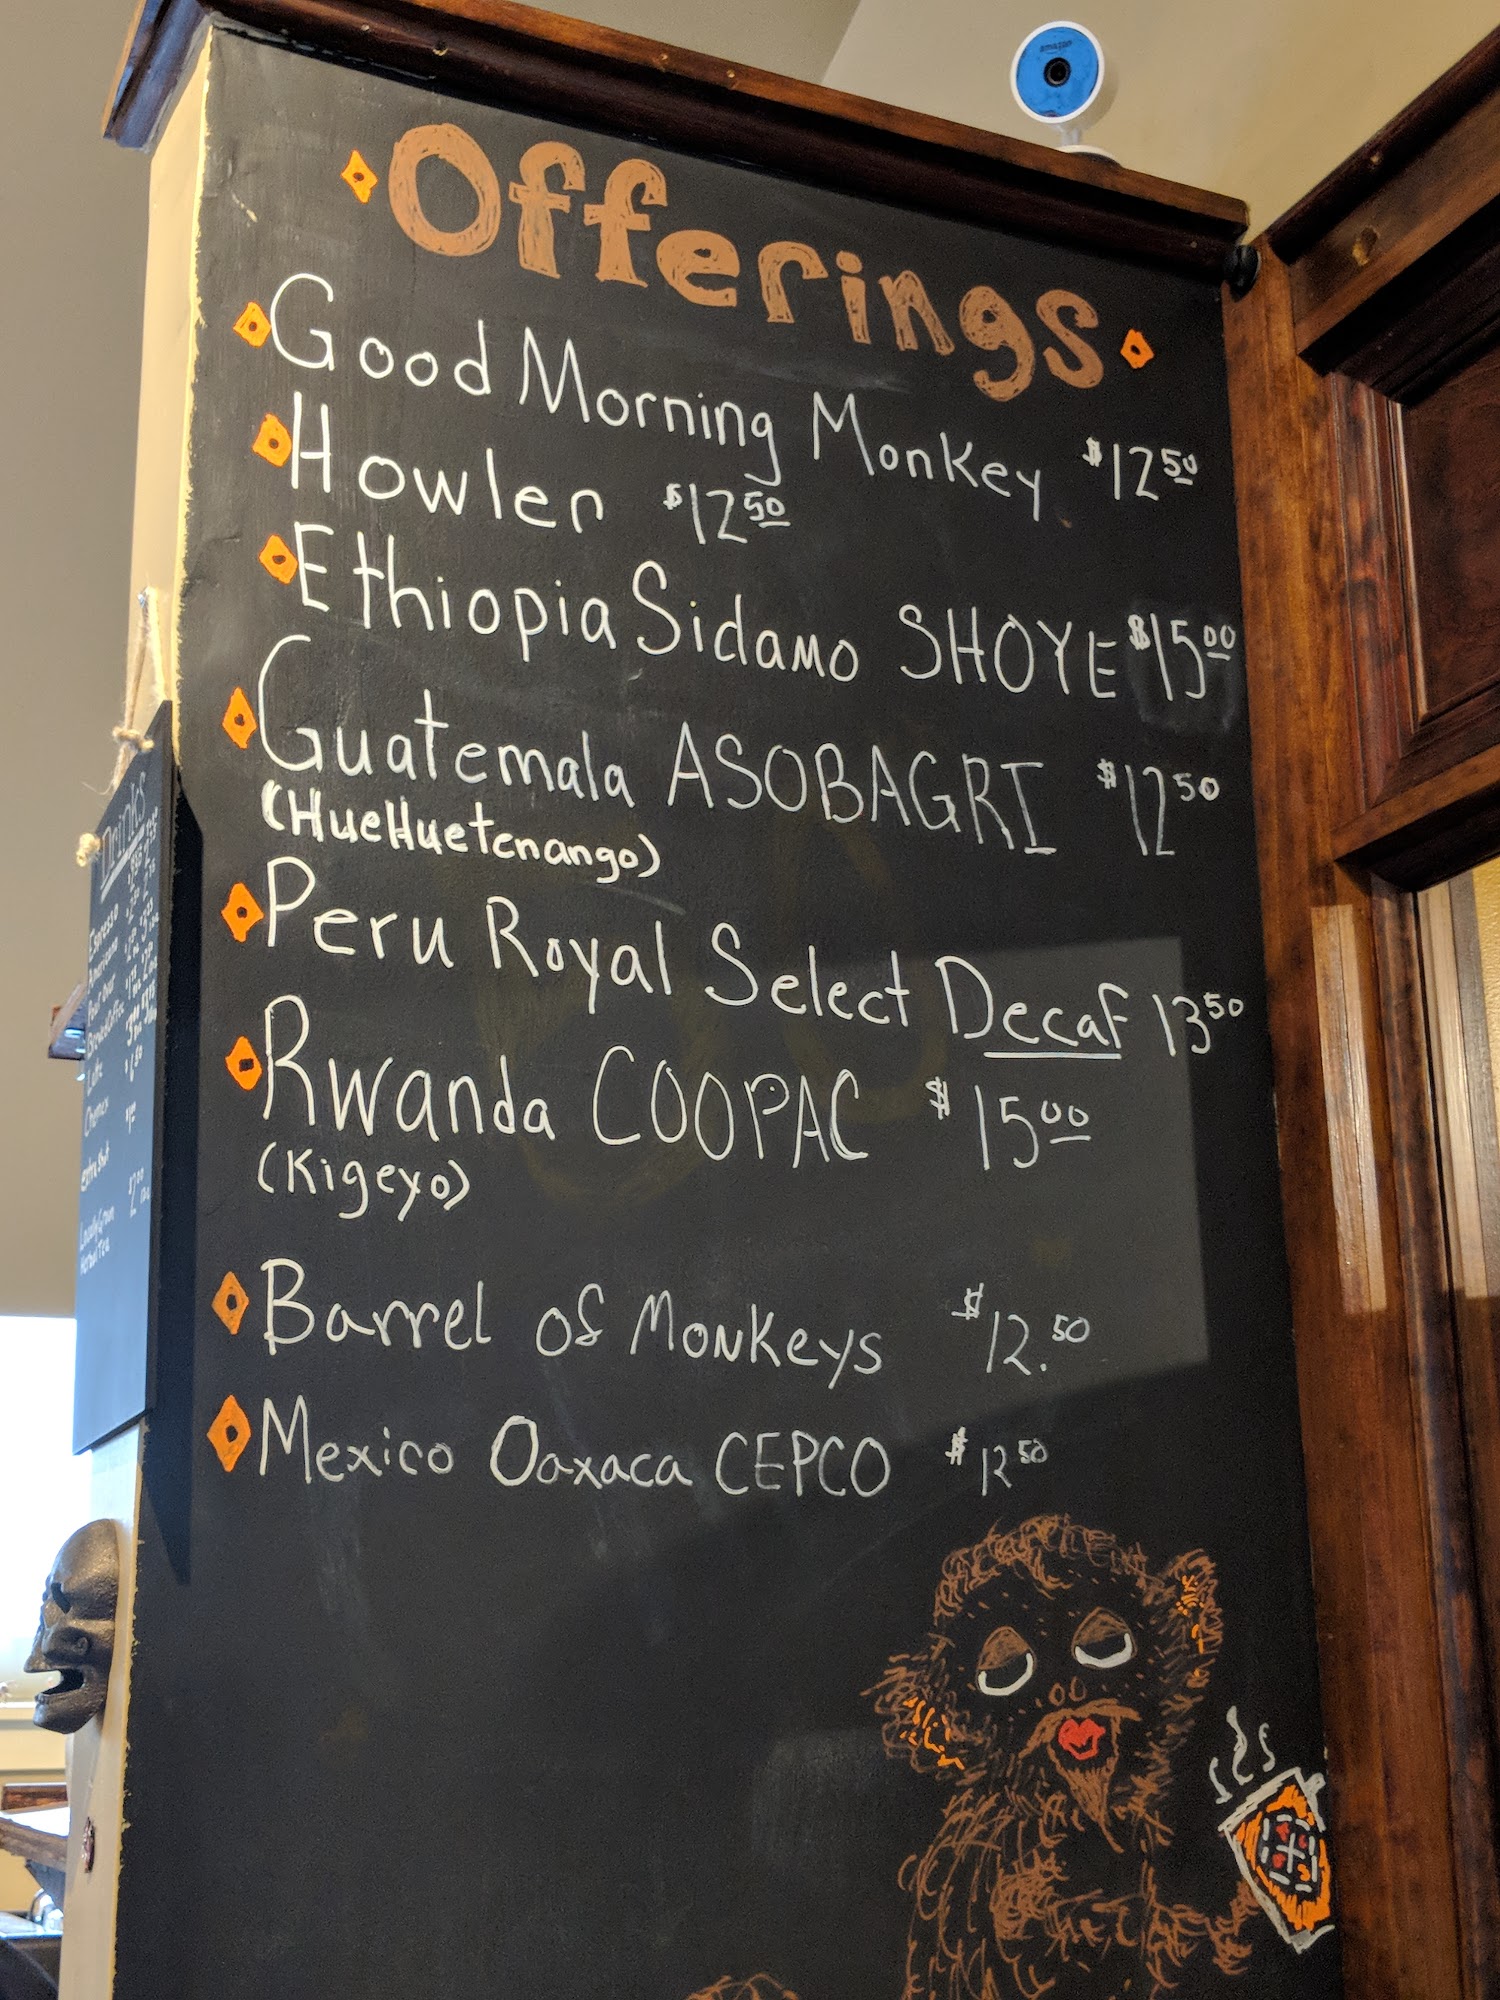 amazon
Offerings
Good Morning Monkey $12 50
Howler $12 50
Ethiopia Sidamo SHOYE $15 00
Guatemala ASOBAGRI $12 50
(HueHuetenango)
Peru Royal Select Decaf 13 50
Rwanda COOPAC $15 00
(Kigeyo)
Barrel of Monkeys $12.50
Mexico Oaxaca CEPCO $12 50
Drinks
Espresso
Americano
Pour over
Latte
Chemex
extra shot
Locally Grown
Herbal Tea